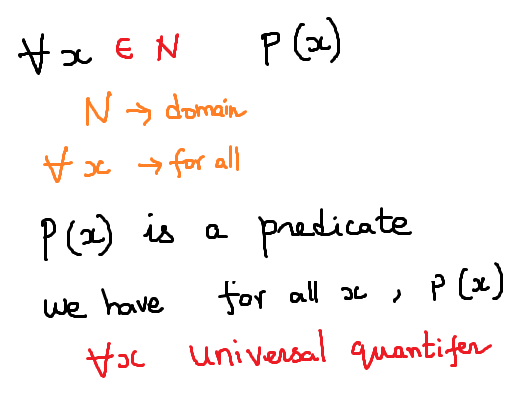 ∀x ∈ N P(x)
N → domain
∀x → for all
P(x) is a predicate
we have for all x, P(x)
∀x universal quantifer